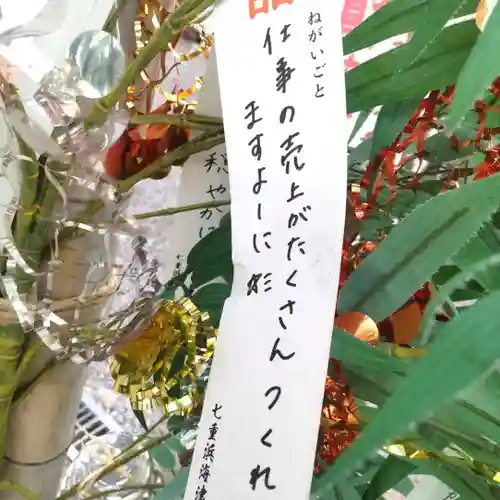 ねがいごと
仕事の売上がたくさんつくれ
ますよーに
七重浜海津